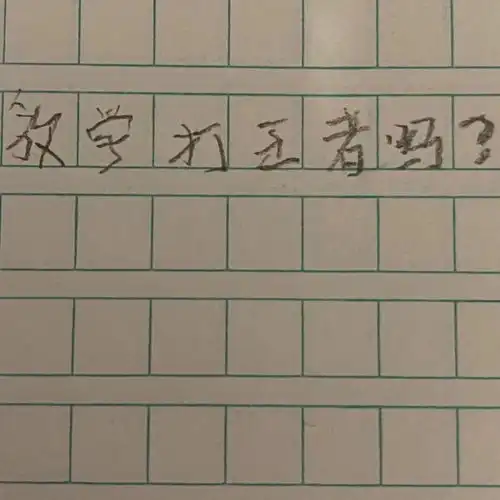 放学打王者吗?